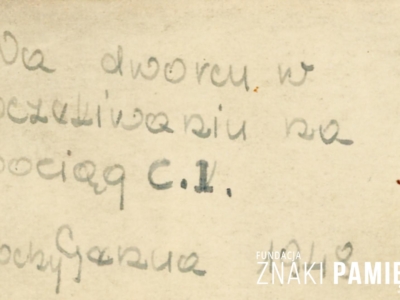 Na dworcu w
oczekiwaniu na
pociąg C.I.
FUNDACJA
ZNAKI PAMIĘ